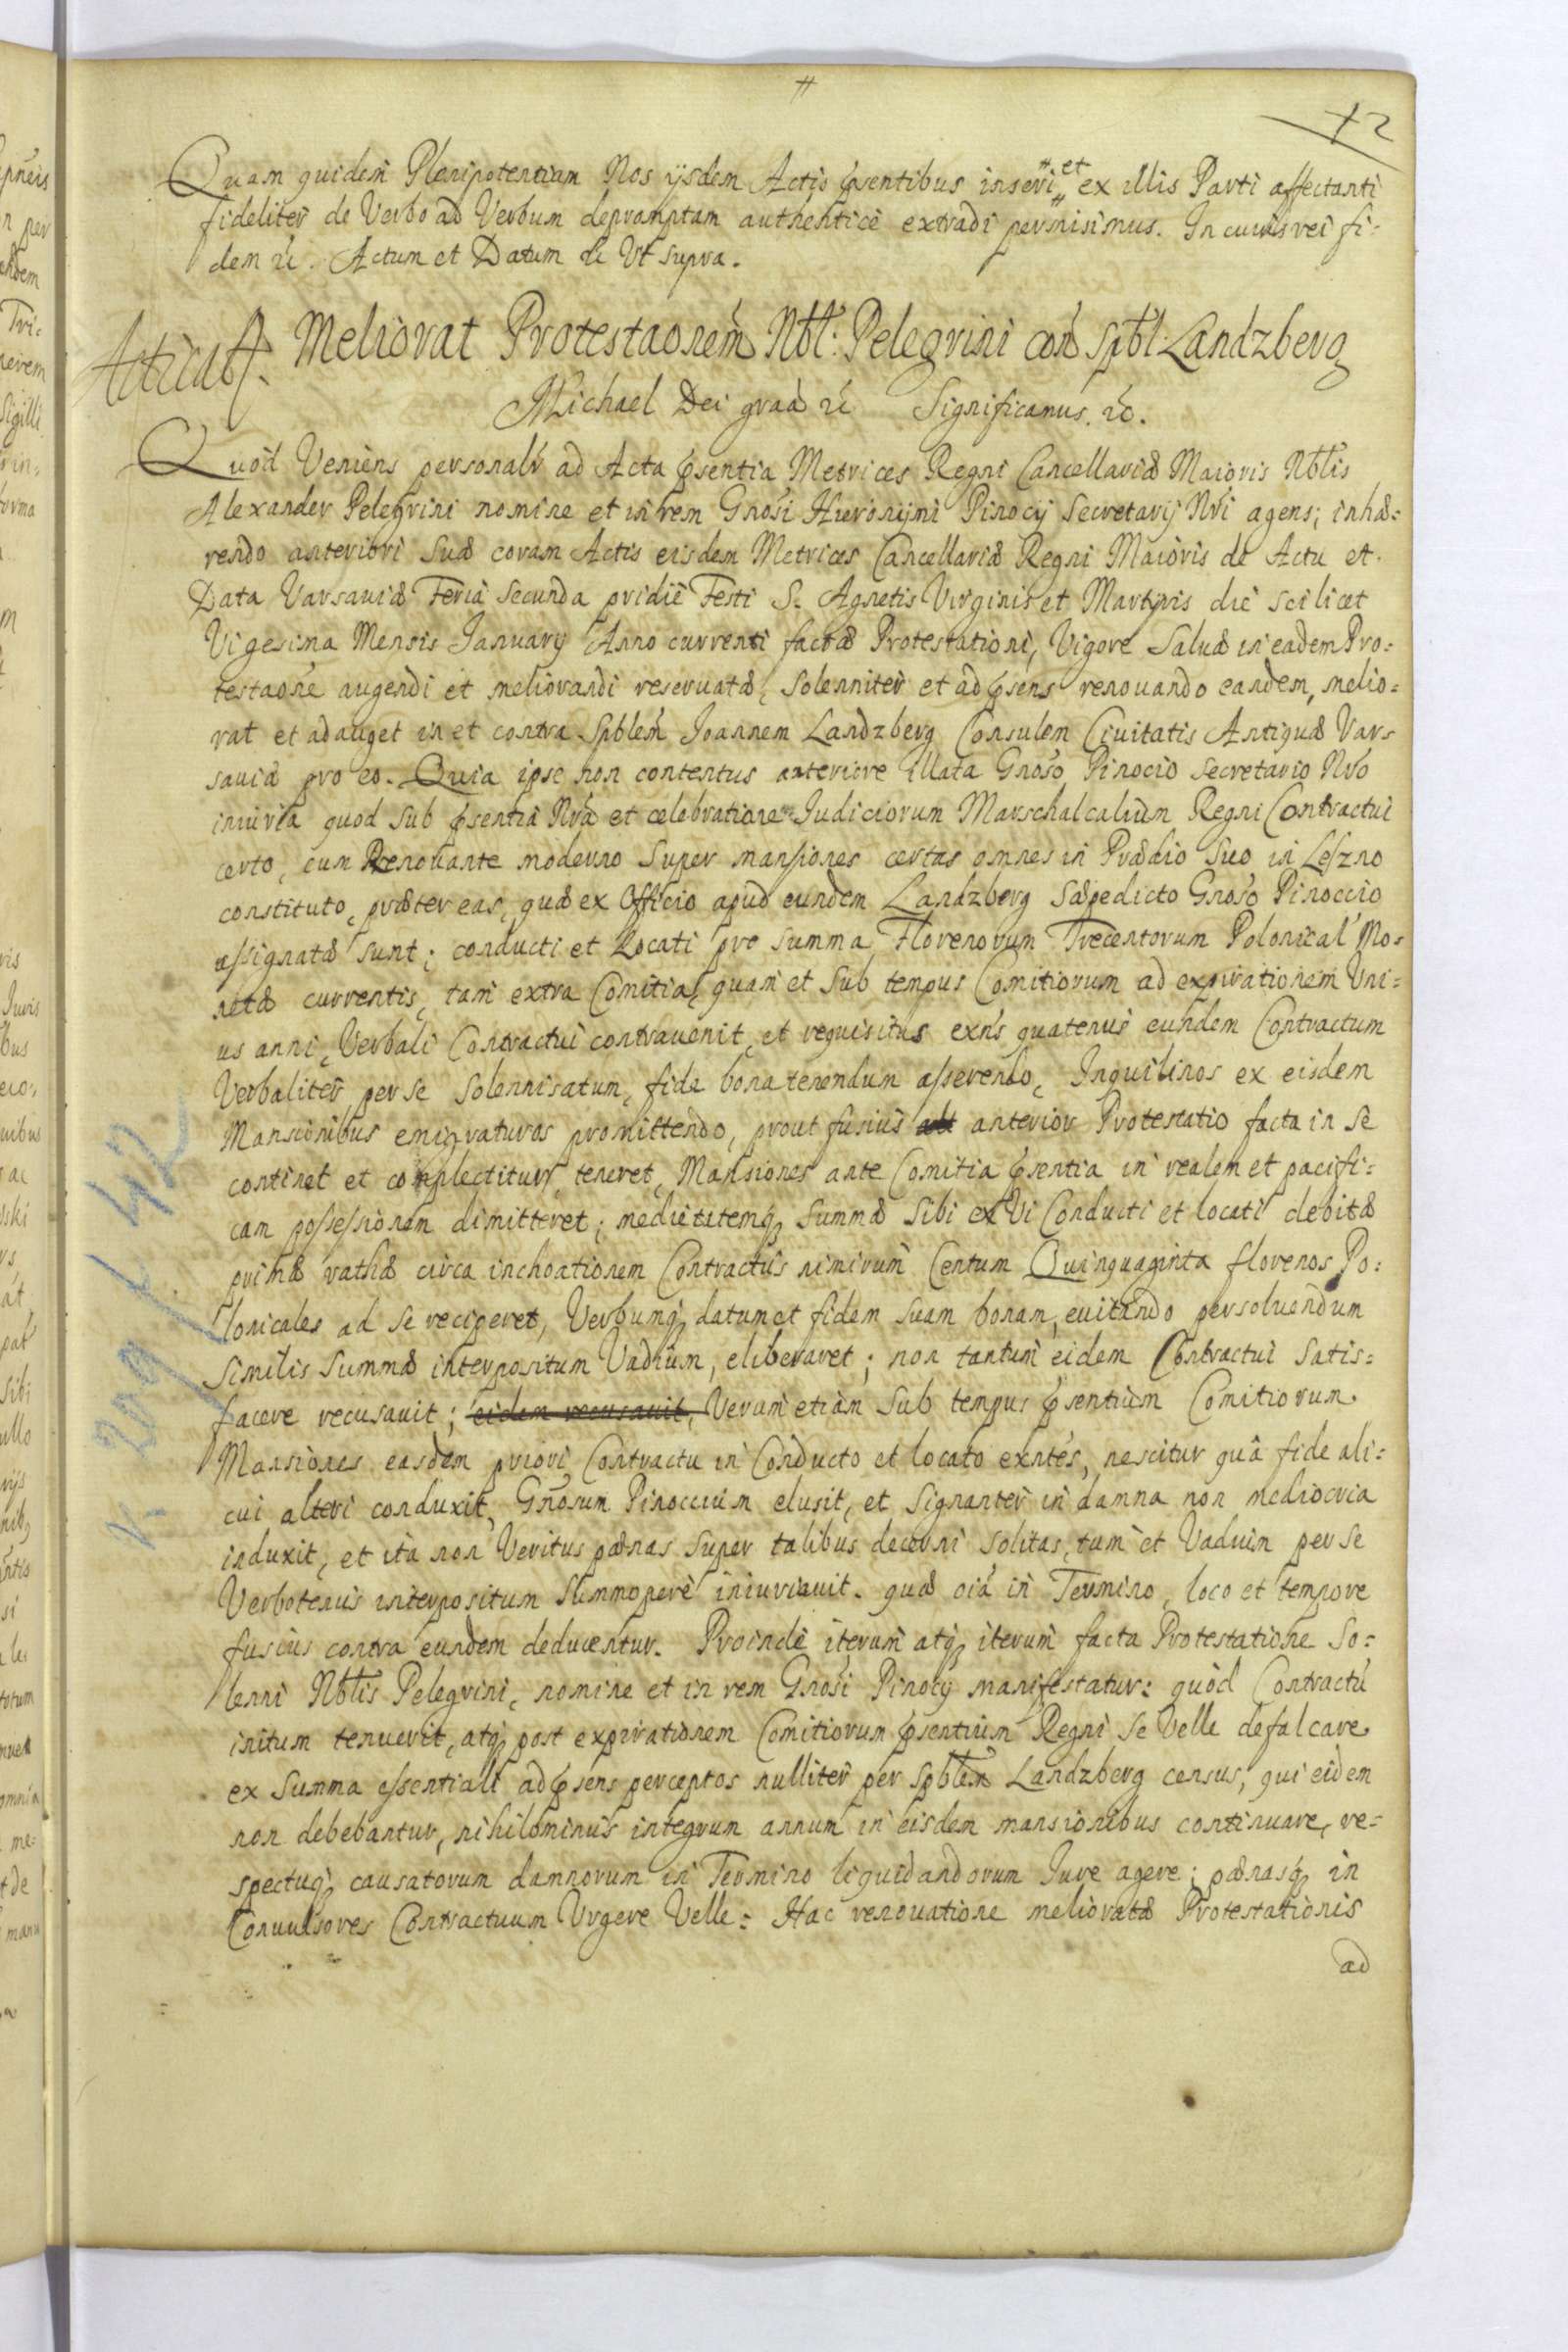 #
12
Quam quidem Plenipotentiam Nos ijsdem Actis pñsentibus inseri # et ex illis Parti affectanti
fideliter de Verbo ad Verbum depromptam authenticè extradi permisimus. In cuius rei fi=
dem &c. Actum et Datum &c Ut supra.
Acticat.
Meliorat Protestaōnem Nbl: Pelegrini con Spbl: Landzberg
Michael Dei graã &c Significamus. &c.
Quod Veniens personalr ad Acta pñsentia Metrices Regni Cancellariæ Maioris Nblis
Alexander Pelegrini nomine et in rem Gnosi Hieronijmi Pinocij Secretarij Nri agens; inhæ=
rendo anteriori suæ coram Actis eisdem Metrices Cancellariæ Regni Maioris de Actu et
Data Varsauiæ Feria Secunda pridiè Festi S. Agnetis Virginis et Martyris die scilicet
Vigesima Mensis Januarij Anno currenti factæ Protestationi, Vigore Saluæ in eadem Pro=
testaōne augendi et meliorandi reseruatæ, Solenniter et ad pñsens renouando eandem, melio=
rat et adauget in et contra Spblem Joannem Landzberg Consulem Ciuitatis Antiquæ Var=
sauiæ pro eo. Quia ipse non contentus anteriore illata Gnoso Pinocio Secretario Nro
iniuria quod sub pñsentiã Nrã et celebratione Iudiciorum Marschalcalium Regni Contractui
certo, cum Renouante moderno Super mansiones certas omnes in Prædio suo in Leszno
constituto, præter eas, quæ ex Officio apud eundem Landzberg Sæpedicto Gnoso Pinoccio
assignatæ sunt; conducti et Locati pro Summa Florenorum Trecentorum Polonical Mo=
netæ currentis, tam extra Comitia, quam et sub tempus Comitiorum ad expirationem Uni=
us anni, Verbali Contractui contrauenit, et requisitus exñs quatenus eundem Contractum
Verbaliter, per se Solennisatum, fide bona tenendum asserendo, Inquilinos ex eisdem
Mansionibus emigraturos promittendo, prout fusius anterior Protestatio facta in se
continet et complectitur, teneret, Mansiones ante Comitia pñsentia in realem et pacifi=
cam possessionem dimitteret; medietatemq3 Summæ Sibi ex Vi Conducti et locati debitæ
primæ rathæ circa inchoationem Contractûs nimirum Centum Quinquaginta florenos Po=
lonicales ad se reciperet, Verbumq3 datum et fidem suam bonam, euitando persoluendum
similis Summæ interpositum Vadium, eliberaret; non tantum eidem Contractui Satis=
facere recusauit; eidem recusauit, Verum etiam sub tempus pñsentium Comitiorum
Mansiones easdem priori Contractu in Conducto et locato exñtes, nescitur quâ fide ali=
cui alteri conduxit, Gnosum Pinoccium elusit, et signanter in damna non mediocria
induxit, et ita non Veritus pænas super talibus decerni solitas, tum et Vadium per se
Verbotenus interpositum Summoperè iniuriauit. quæ oiã in Termino, loco et tempore
fusius contra eundem deducentur. Proinde iterum atq3 iterum facta Protestatione So=
lenni Nblis Pelegrini, nomine et in rem Gnosi Pinocij manifestatur: quod Contractû
initum tenuerit, atq3 post expirationem Comitiorum pñsentium Regni se Velle defalcare
ex Summa essentiali ad pñsens perceptos nulliter per Spblem Landzberg census, qui eidem
non debebantur, nihilominus integrum annum in eisdem mansionibus continuare, re=
spectuq3 causatorum damnorum in Termino liquidandorum Iure agere; pænasq3 in
Conuulsores Contractuum Urgere Velle: Hac renouatione melioratæ Protestationis
ad